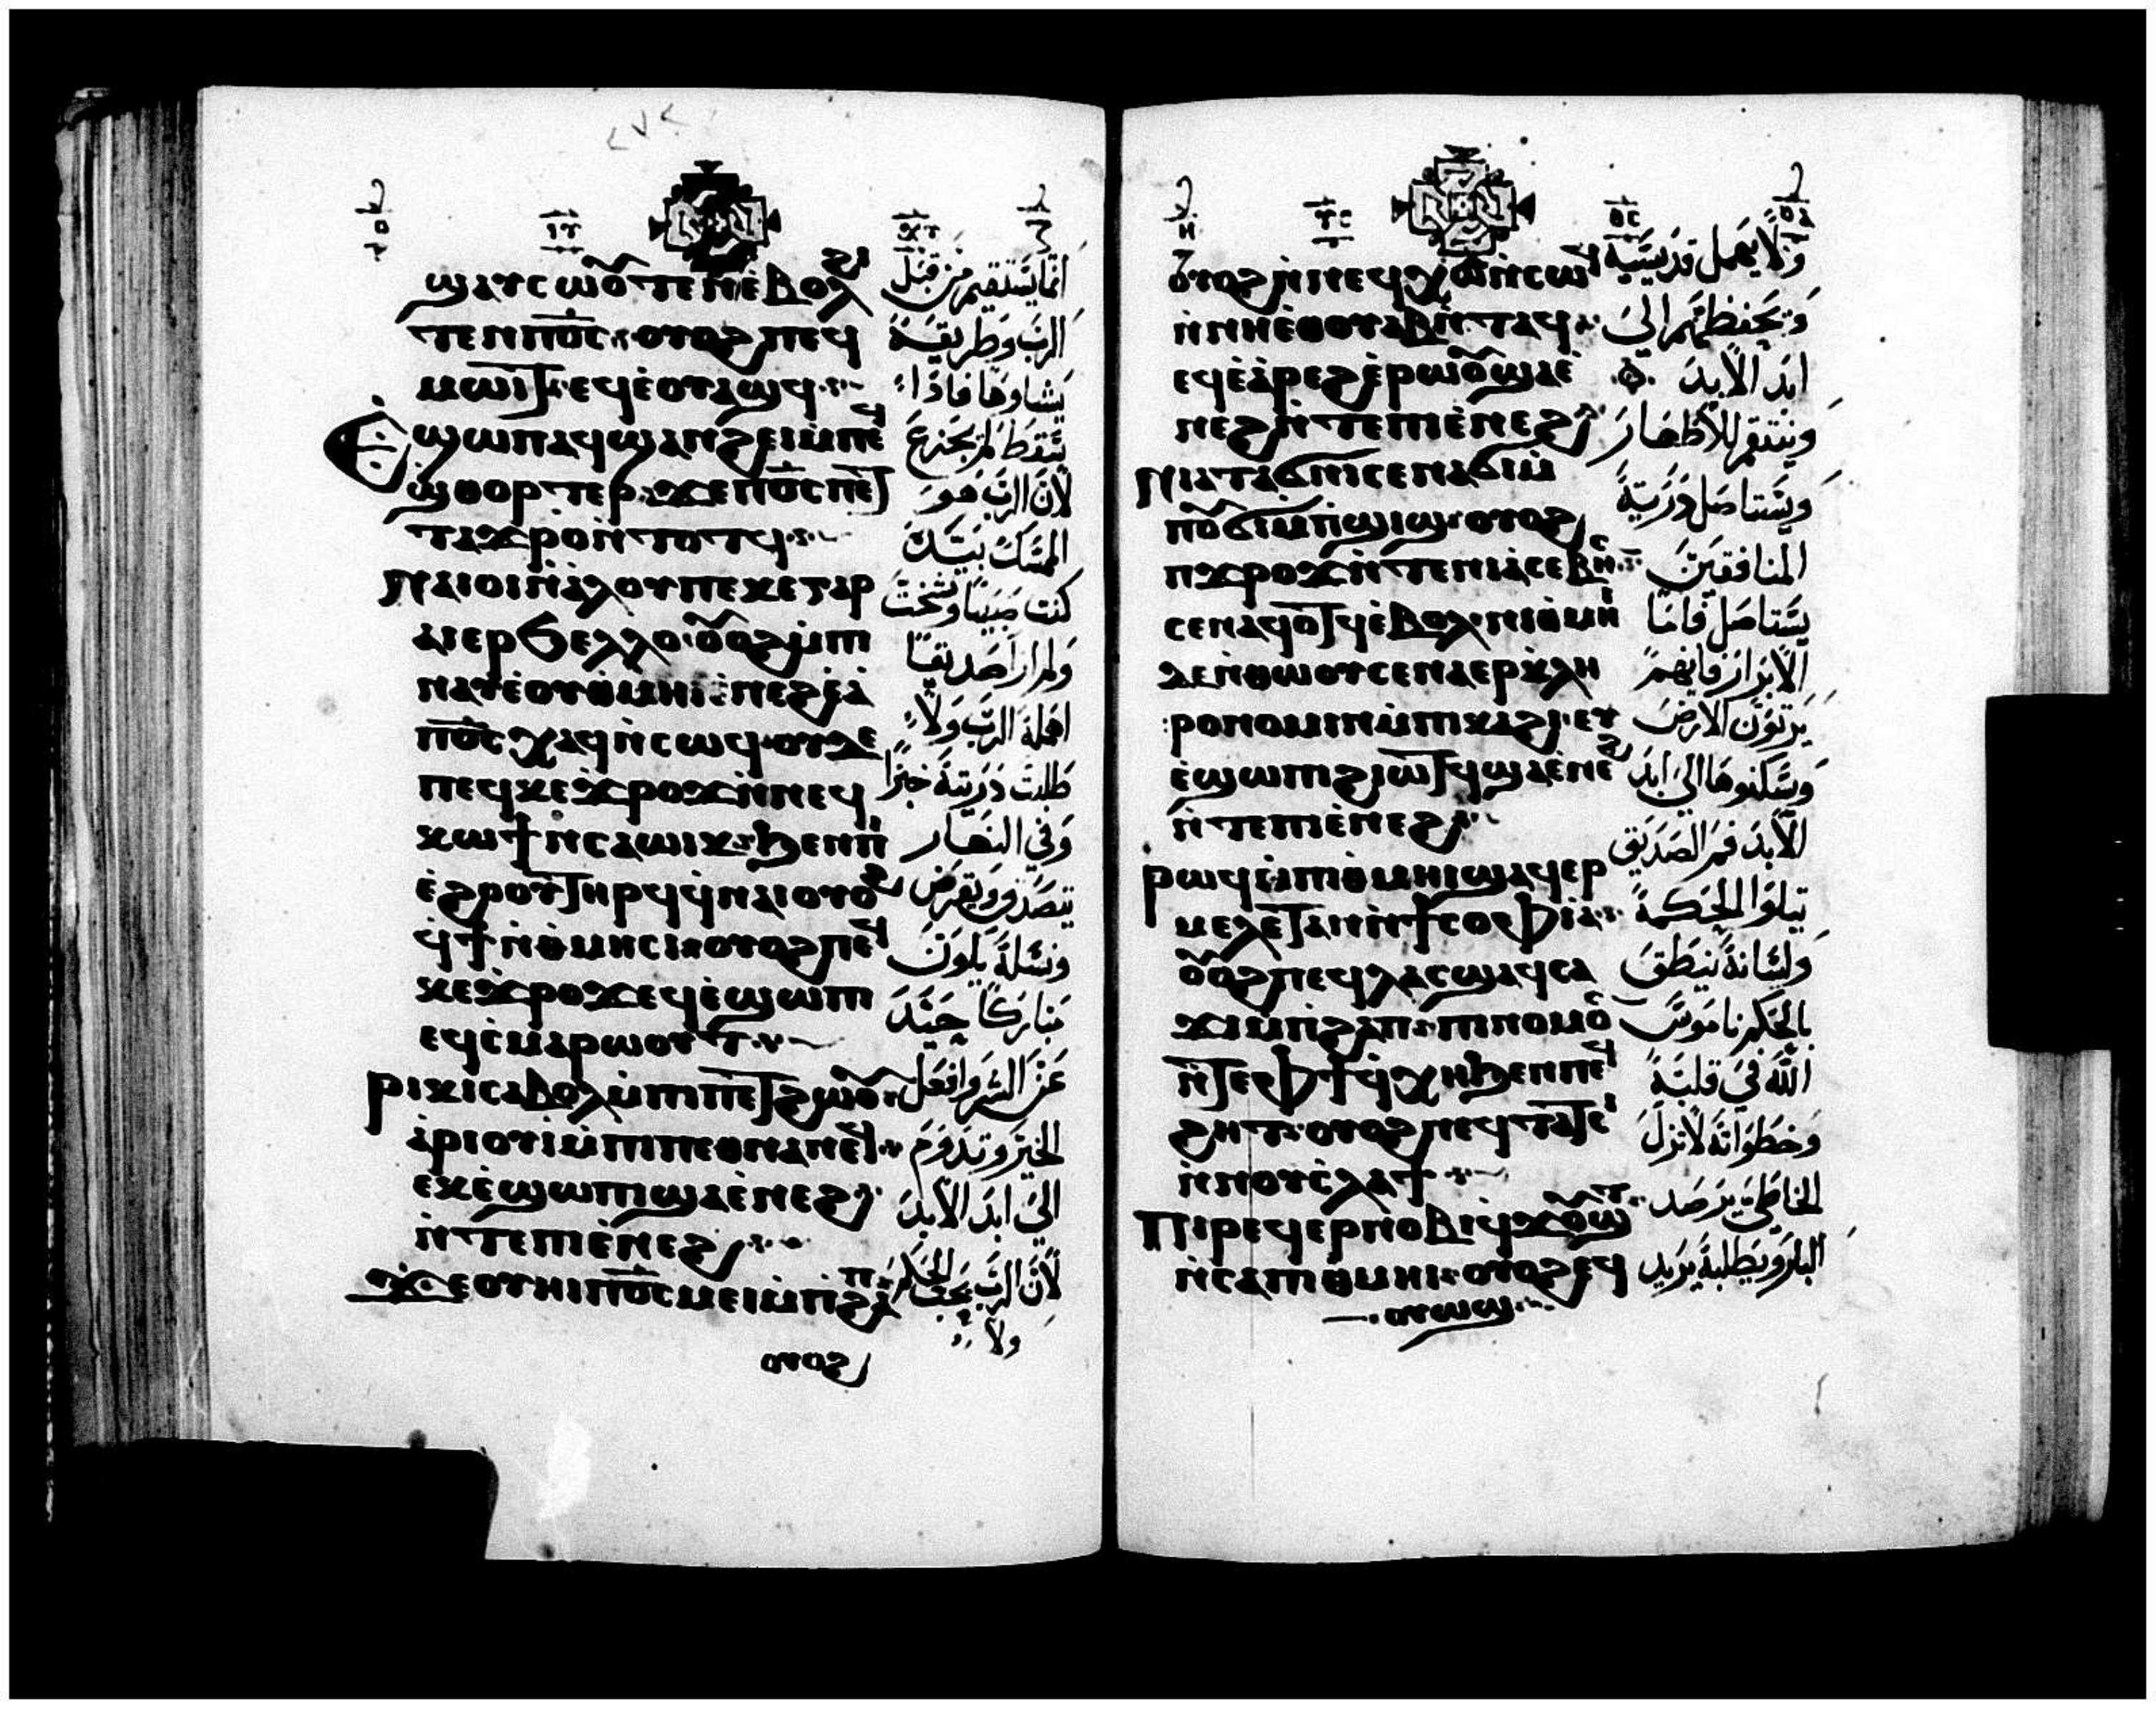 ϣⲁⲩⲥⲱⲟⲩⲧⲉⲛ ⲉ̀ⲃⲟⲗϩⲓ
ⲧⲉⲛ ⲡⲟ̅ⲥ̅ ⲟⲩⲟϩ ⲡⲉϥ
ⲙⲱⲓⲧ ⲉϥⲉ̀ⲟⲩⲁϣϥ
Ⲉ̀ϣⲱⲡ ⲁϥϣⲁⲛϩⲉⲓ ⲙ̀ⲡⲉϥ
ϣⲑⲟⲣⲧⲉⲣ ϫⲉ ⲡⲟ̅ⲥ̅ ⲡⲉⲧ
ⲧⲁϫⲣⲟ ⲛ̀ⲧⲟⲧϥ
Ⲛⲁⲓⲟⲓ ⲛ̀ⲁ̀ⲗⲟⲩ ⲡⲉ ⲕⲉ ⲅⲁⲣ
ⲁⲓⲉⲣϧⲉⲗⲗⲟ ⲟⲩⲟϩ ⲙ̀ⲡⲓ
ⲛⲁⲩ ⲉ̀ⲟⲩⲑ̀ⲙⲏⲓ ⲙ̀ⲡⲉϩ ⲉ̀ⲁ̀
ⲡⲟ̅ⲥ̅ ⲭⲁϥ ⲛ̀ⲥⲱϥ ⲟⲩⲇⲉ
ⲡⲉϥⲕⲉϫ̀ⲣⲟϫ ⲛ̀ⲛⲉϥ
ⲕⲱϯ ⲛⲥⲁ ⲱⲓⲕ ϧⲉⲛ ⲡⲓ
ⲉ̀ϩⲣⲟⲟⲩ ⲧⲏⲣϥ ϥ̀ⲛⲁⲓ ⲟⲩⲟϩ
ϥ̀ϯ ⲛ̀ⲑ̀ⲙⲏⲥⲓ ⲟⲩⲟϩ ⲡⲉϥ
ⲕⲉϫ̀ⲣⲟϫ ⲉϥⲉ̀ϣⲱⲡⲓ
ⲉϥⲥ̀ⲙⲁⲣⲱⲟⲩⲧ
ⲣⲓⲕⲓ ⲥⲁⲃⲟⲗ ⲙ̀ⲡⲓⲡⲉⲧϩⲱⲟⲩ
ⲁ̀ⲣⲓⲟⲩⲓ ⲙ̀ⲡⲓⲡⲉⲑⲛⲁⲛⲉϥ
ⲉⲕⲉ̀ϣⲱⲡⲓ ϣⲁ ⲉ̀ⲛⲉϩ
ⲛ̀ⲧⲉ ⲡⲓⲉ̀ⲛⲉϩ
ϫⲉ ⲟⲩⲏⲓ ⲡⲟ̅ⲥ̅ ⲙⲉⲓ ⲙ̀ⲡ̀ϩⲁⲡ
ⲟⲩⲟϩ
انما يستقيم من قبل
الرب وطريقه
يشاوها فاذا
سقط لم يجزع
لان الرب هو
الممسك بيده
كنت صبيا وشخت
ولم ار صديقا
اهمله الرب ولا
طلبت ذريته خبزا
وفي النهار
يتصدق ويقرض
ونسله يكون
مباركا حيد
عن الشر وافعل
الخير وتدوم
الي ابد الابد
لان الرب يحب الحكم
ولا
ⲟⲩⲟϩ ⲛ̀ⲛⲉϥⲭⲱ ⲛ̀ⲥⲱϥ
ⲛ̀ⲛⲏⲉⲑⲟⲩⲁⲃ ⲛ̀ⲧⲁϥ
ⲉϥⲉ̀ⲁ̀ⲣⲉϩ ⲉ̀ⲣⲱⲟⲩ ϣⲁ ⲉ̀
ⲛⲉϩ ⲛ̀ⲧⲉ ⲡⲓⲉ̀ⲛⲉϩ
Ⲛⲓⲁⲧⲁϭⲛⲓ ⲥⲉⲛⲁϭⲓ ⲙ̀
ⲡⲟⲩϭⲓⲙ̀ⲡ̀ϣⲓϣ ⲟⲩⲟϩ
ⲡ̀ϫⲣⲟϫ ⲛ̀ⲧⲉ ⲛⲓⲁ̀ⲥⲉⲃⲏⲥ
ⲥⲉⲛⲁϥⲟⲧϥ ⲉ̀ⲃⲟⲗ ⲛⲓⲑ̀ⲙⲏⲓ
ⲇⲉ ⲛ̀ⲑⲱⲟⲩ ⲥⲉⲛⲁⲉⲣⲕ̀ⲗⲏ
ⲣⲟⲛⲟⲙⲓⲛ ⲙ̀ⲡⲓⲕⲁϩⲓ ⲉⲩ
ⲉ̀ϣⲱⲡⲓ ϩⲓⲱⲧϥ ϣⲁ ⲉ̀ⲛⲉϩ
ⲛ̀ⲧⲉ ⲡⲓⲉ̀ⲛⲉϩ
ⲣⲱϥ ⲙ̀ⲡⲓⲑ̀ⲙⲏⲓ ϣⲁϥⲉⲣ
ⲙⲉⲗⲉⲧⲁⲛ ⲛ̀ϯⲥⲟⲫⲓⲁ
ⲟⲩⲟϩ ⲡⲉϥⲗⲁⲥ ϣⲁϥⲥⲁ
ϫⲓ ⲙ̀ⲡ̀ϩⲁⲡ ⲡⲓⲛⲟⲙⲟⲥ
ⲛ̀ⲧⲉ ⲫϯ ϥ̀ⲭⲏ ϧⲉⲛ ⲡⲉϥ
ϩⲏⲧ ⲟⲩⲟϩ ⲛⲉϥⲧⲁⲧⲥⲓ
ⲛ̀ⲛⲟⲩⲥ̀ⲗⲁϯ
Ⲡⲓⲣⲉϥⲉⲣⲛⲟⲃⲓ ϥ̀ϫⲟⲩϣⲧ
ⲛ̀ⲥⲁ ⲡⲓⲑ̀ⲙⲏⲓ ⲟⲩⲟϩ ⲉϥ
ⲟⲩⲱϣ
ولا يهمل قديسيه
ويحفظهم الي
ابد الابد
وينتقم للاطهار
ويستاصل ذرية
المنافقين
يستاصل فاما
الابرار فانهم
يرثون الارض
ويسكنوها الي ابد
الابد فم الصديق
يتلوا الحكمة
ولسانه ينطق
بالحكم ناموس
الله في قلبه
وخطواته لا تزل
الخاطي يرصد
البار ويطلبه يريد